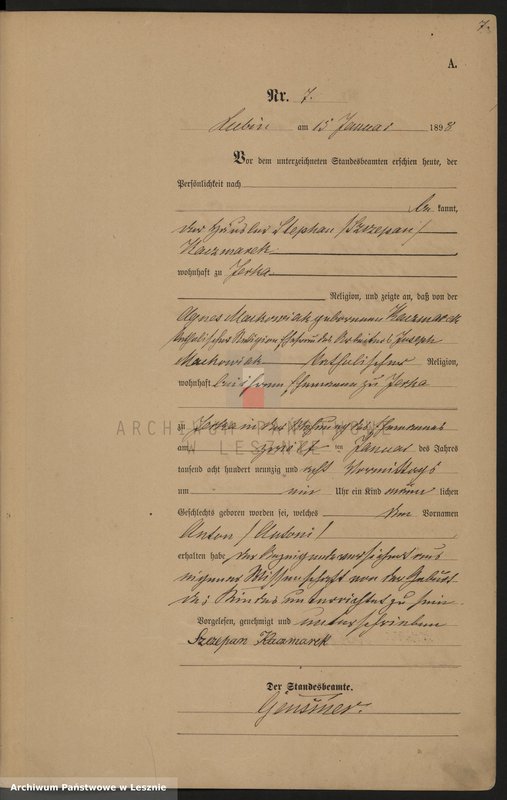 7.
A.
Nr. 7.
Lubin am 15 Januar 1898
Vor dem unterzeichneten Standesbeamten erschien heute, der
Persönlichkeit nach
be kannt,
der Häusler Stephan /Szczepan/
Kaczmarek
wohnhaft zu Jerka
Religion, und zeigte an, daß von der
Agnes Maćkowiak geborenen Kaczmarek
katholischer Religion Ehefrau des Arbeiters Joseph
Maćkowiak katholischer Religion,
wohnhaft bei ihrem Ehemanne zu Jerka
zu Jerka in der Wohnung des Ehemannes
am ten Januar des Jahres
tausend acht hundert neunzig und acht Vormittags
um ein Uhr ein Kind männ lichen
Geschlechts geboren worden sei, welches den Vornamen
Anton /Antoni/
erhalten habe der Anzeigende versichert aus
eigener Wissenschaft von der Geburt
des Kindes unterrichtet zu sein
Vorgelesen, genehmigt und unterschrieben
Szczepan Kaczmarek
Der Standesbeamte.
ARCHIWUM PAŃSTWOWE
W LESZNIE
Archiwum Państwowe w Lesznie